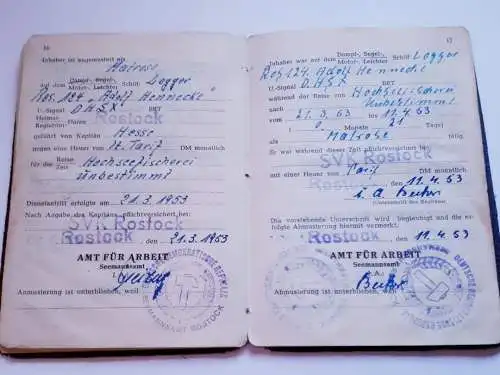 16
Inhaber ist angemustert als
Matrose
auf dem Dampf-, Segel-, Motor-, Leichter Schiff Logger
Ros. 124 "Adolf Hennecke"
U.-Signal DHSX BRT
Heimat-
Register-Hafen Rostock
geführt von Kapitän Hesse
gegen eine Heuer von lt. Tarif DM monatlich
für die Reise
Zeit Hochseefischerei
unbestimmt
Dienstantritt erfolgte am 21.3.1953
Nach Angabe des Kapitäns pflichtversichert bei:
SVK Rostock
Rostock, den 21.3.1953
AMT FÜR ARBEIT
Seemannsamt
DEMOKRATISCHE REPUBLIK
SEEMANNSAMT ROSTOCK
Abmusterung ist unterblieben, weil
17
Inhaber war auf dem Dampf-, Segel-, Motor-, Leichter Schiff Logger
Ros 124 Adolf Hennecke
U.-Signal DHSX BRT
während der Reise von
unbestimmt
vom 21.3.53 bis 11.4.53
0 Monate 21 Tage
als Matrose tätig.
Er war während dieser Zeit pflichtversichert bei
SVK Rostock
gegen eine Heuer von Tarif DM monatlich
Rostock, den 11.4.53
i. A.
(Unterschrift des Kapitäns)
Die vorstehende Unterschrift wird beglaubigt und die erfolgte Abmusterung hiermit vermerkt.
Rostock, den 11.4.53
AMT FÜR ARBEIT
Seemannsamt
i. A.
Anmusterung ist unterblieben, weil